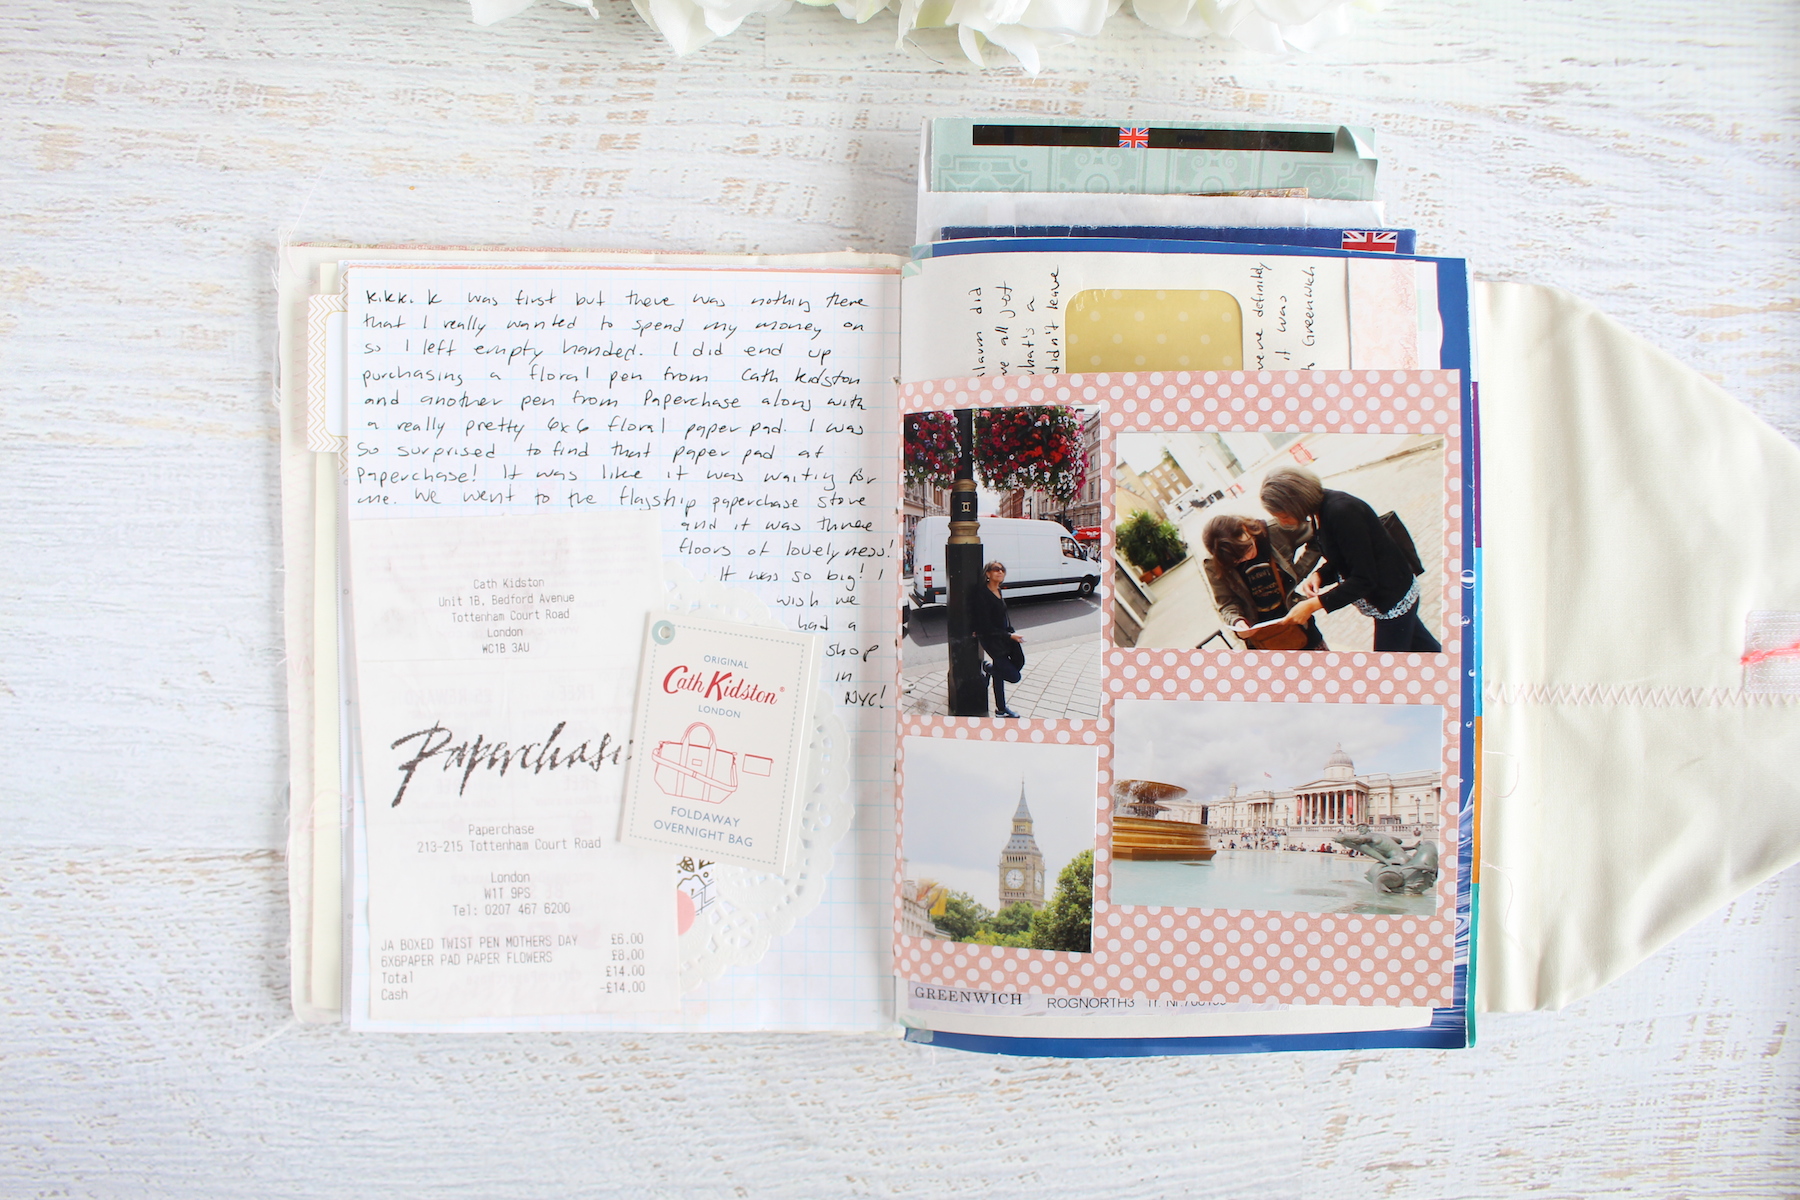 kikki. K was first but there was nothing there
that I really wanted to spend my money on
so I left empty handed. I did end up
purchasing a floral pen from Cath Kidston
and another pen from Paperchase along with
a really pretty 6x6 floral paper pad. I was
so surprised to find that paper pad at
Paperchase! It was like it was waiting for
me. We went to the flagship paperchase store
and it was three
floors of lovelyness!
It was so big! I
wish we
had a
shop
in
NYC!
Cath Kidston
Unit 1B, Bedford Avenue
Tottenham Court Road
London
WC1B 3AU
Paperchase
Paperchase
213-215 Tottenham Court Road
London
W1T 9PS
Tel: 0207 467 6200
JA BOXED TWIST PEN MOTHERS DAY £6.00
6X6PAPER PAD PAPER FLOWERS £8.00
Total £14.00
Cash -£14.00
ORIGINAL
Cath Kidston®
LONDON
FOLDAWAY
OVERNIGHT BAG
alarm did
all just
what's a
didn't leave
were definitely
it was
Greenwich
GREENWICH
ROGNORTH3